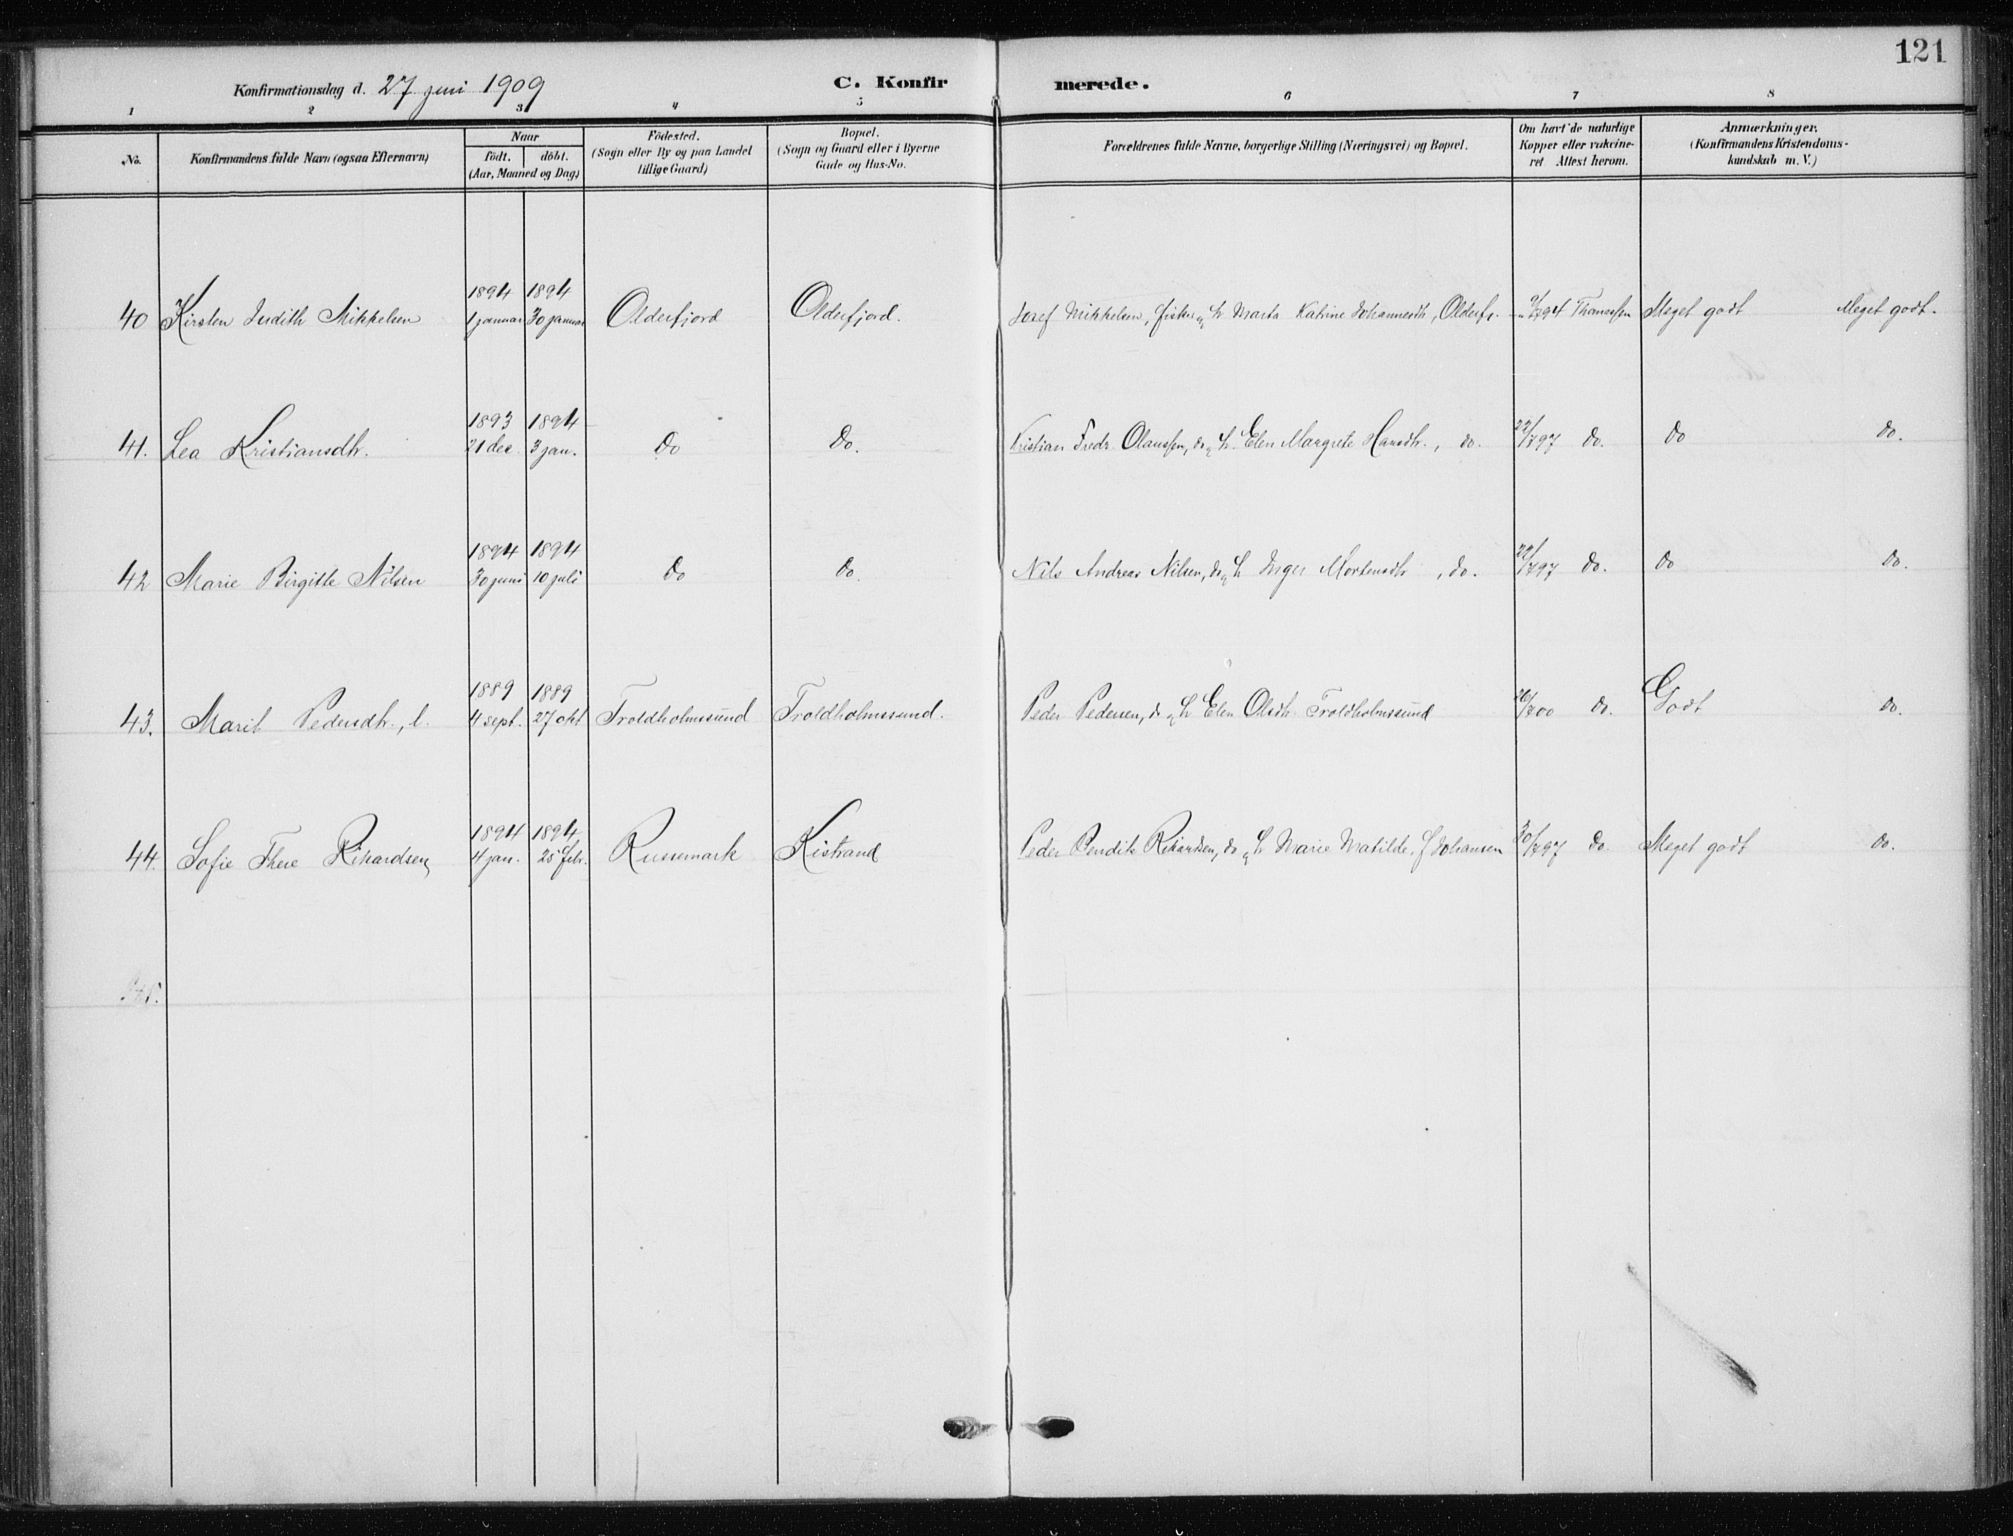 121
Konfirmationsdag d. 27 juni 1909 C. Konfirmerede.
1 2 3 4 5 6 7 8
No. Konfirmandens fulde Navn (ogsaa Efternavn) Naar født. døbt. (Aar, Maaned og Dag) Fødested. (Sogn eller By og paa Landet tillige Gaard) Bopæl. (Sogn og Gaard eller i Byerne Gade og Hus-No. Forældrenes fulde Navne, borgerlige Stilling (Næringsvei) og Bopæl. Om havt de naturlige Kopper eller vakcineret Attest herom. Anmærkninger. (Konfirmandens Kristendomskundskab m. V.)
1894 1894
40 Kirsten Judith Mikkelsen 1 januar 30 januar Olderfjord Olderfjord. Josef Mikkelsen, fisker og h. Marta Katrine Johannesdt, Olderfj. 94 Thomassen Meget godt Meget godt.
1893 1894
41. Lea Kristiansdtr. 21 dec. 3 jan. do do. Kristian Fredr. Olaussen, do. og h. Elen Margrete Hansdtr., do. 22/7 97 do. do do.
1894 1894
42 Marie Birgitte Nilsen 30 juni 10 juli do do. Nils Andreas Nilsen, do. og h Inger Mortensdtr, do. 22/7 97 do. do do.
1889 1889
43. Marit Pedersdtr., l. 4 sept. 27 okt Troldholmsund Troldholmssund. Peder Pedersen, do og h Elen Olsdtr Troldholmssund 26/7 00 do. Godt do.
1894 1894
44. Sofie There Rikardsen 4 jan. 25 febr. Russemark Kistrand Peder Bendik Rikardsen, do og h Marie Matilde, f Johansen 30/7 97 do. Meget godt do.
45.